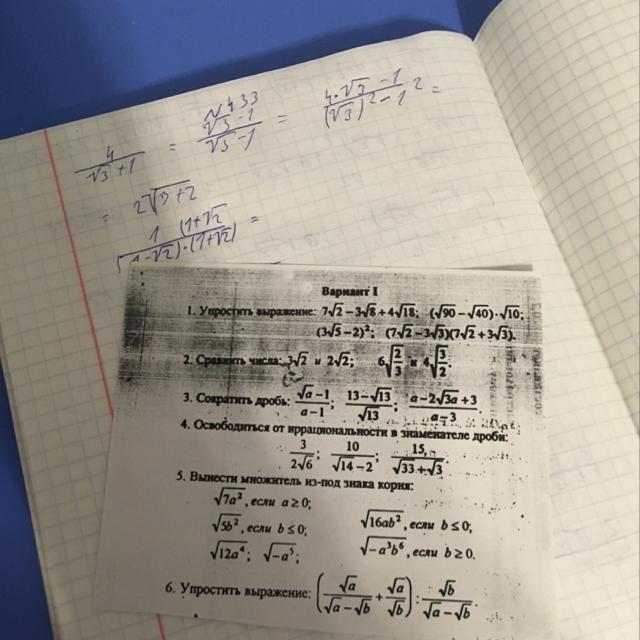 4/(√3+1) = (√3-1)/(√3-1) = (4·√3-1)/((√3)²-1²) =
=
Вариант I
1. Упростить выражение: 7√2 − 3√8 + 4√18; (√90 − √40)·√10;
(3√5 − 2)²; (7√2 − 3√3)(7√2 + 3√3).
2. Сравнить числа: 3√2 и 2√2; 6√(2/3) и 4√(3/2).
3. Сократить дробь: (√a − 1)/(a − 1); (13 − √13)/√13; (a − 2√3a + 3)/(a − 3).
4. Освободиться от иррациональности в знаменателе дроби:
3/(2√6); 10/(√14 − 2); 15/(√33 + √3).
5. Вынести множитель из-под знака корня:
√7a², если a ≥ 0;
√5b², если b ≤ 0; √16ab², если b ≤ 0;
√12a⁴; √−a⁵; √−a³b⁶, если b ≥ 0.
6. Упростить выражение: (√a/(√a − √b) + √a/√b) : √b/(√a − √b).